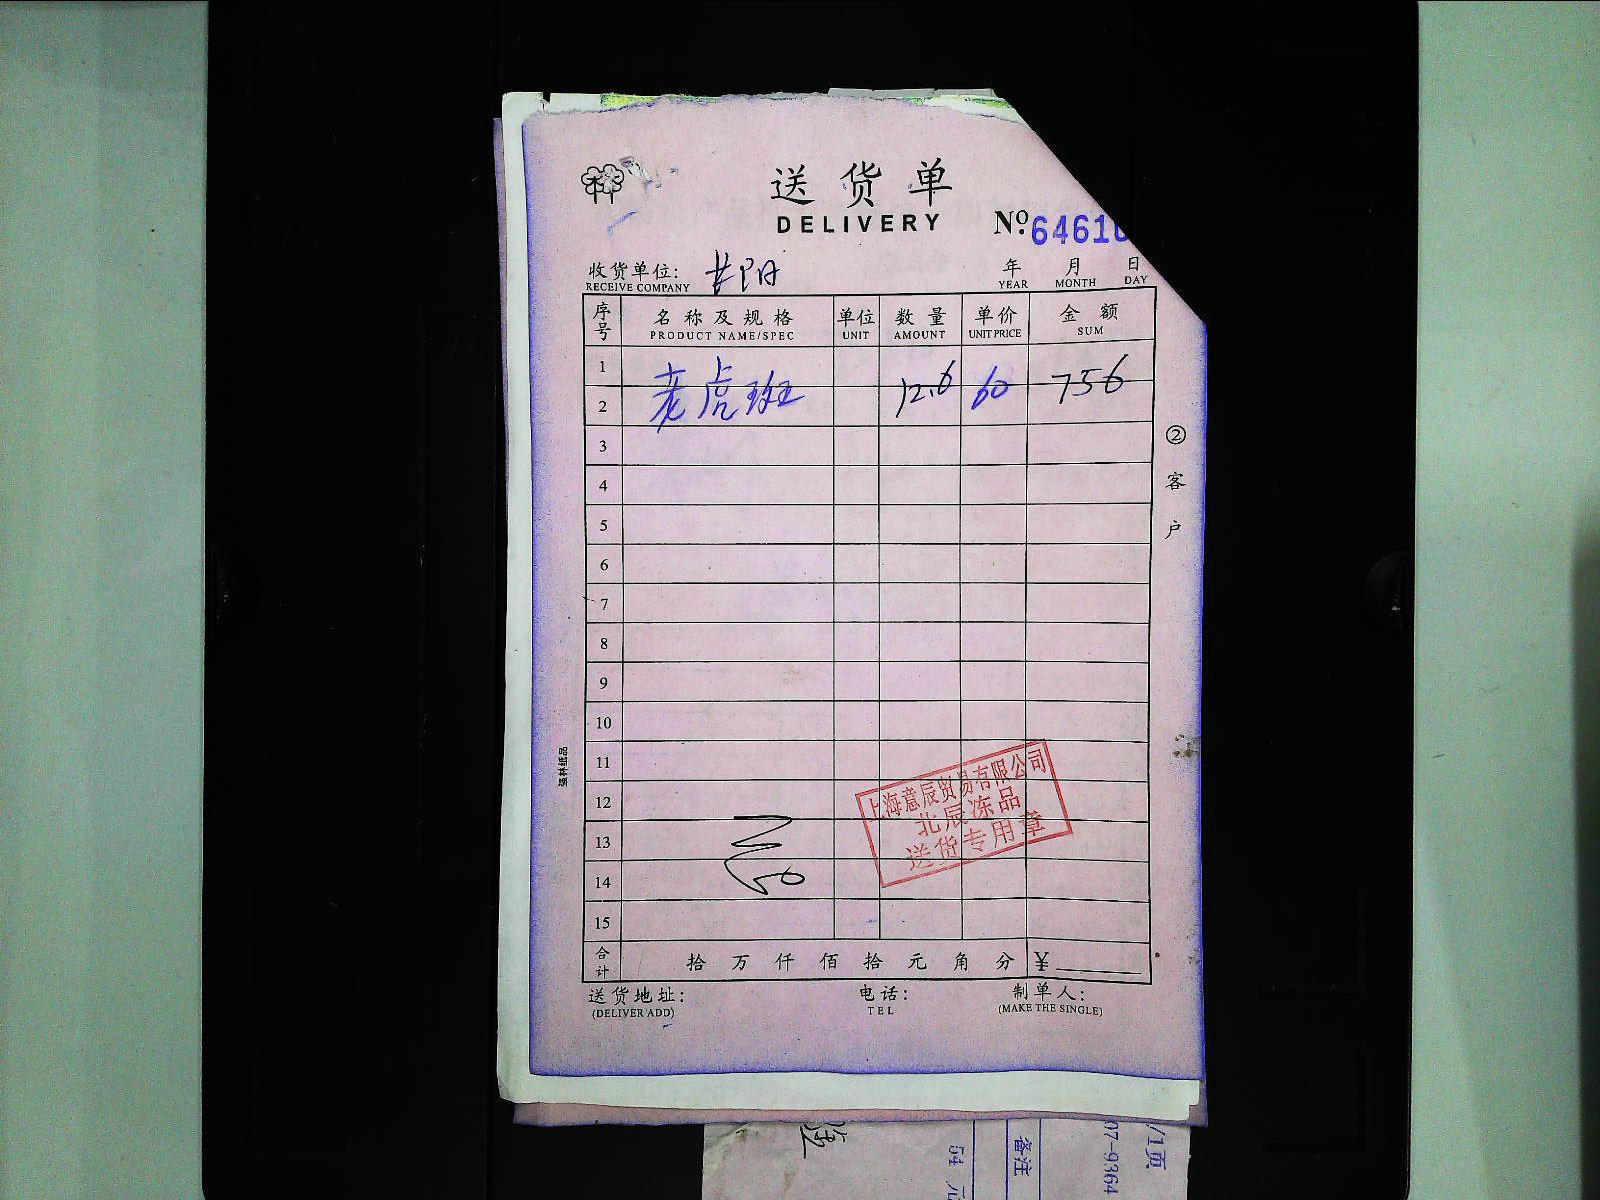 送货单
DELIVERY
№ 6461
收货单位:
RECEIVE COMPANY
年 月 日
YEAR MONTH DAY
序号 名称及规格 单位 数量 单价 金额
PRODUCT NAME/SPEC UNIT AMOUNT UNIT PRICE SUM
1
老虎斑 12.6 60 756
2
3
4
5
6
7
8
9
10
11
12
13
14
15
② 客户
强林纸品
上海意辰贸易有限公司
北辰冻品
送货专用章
合计 拾 万 仟 佰 拾 元 角 分 ¥
送货地址: 电话: 制单人:
(DELIVER ADD) TEL (MAKE THE SINGLE)
54 元
备注
07-9364
/1页